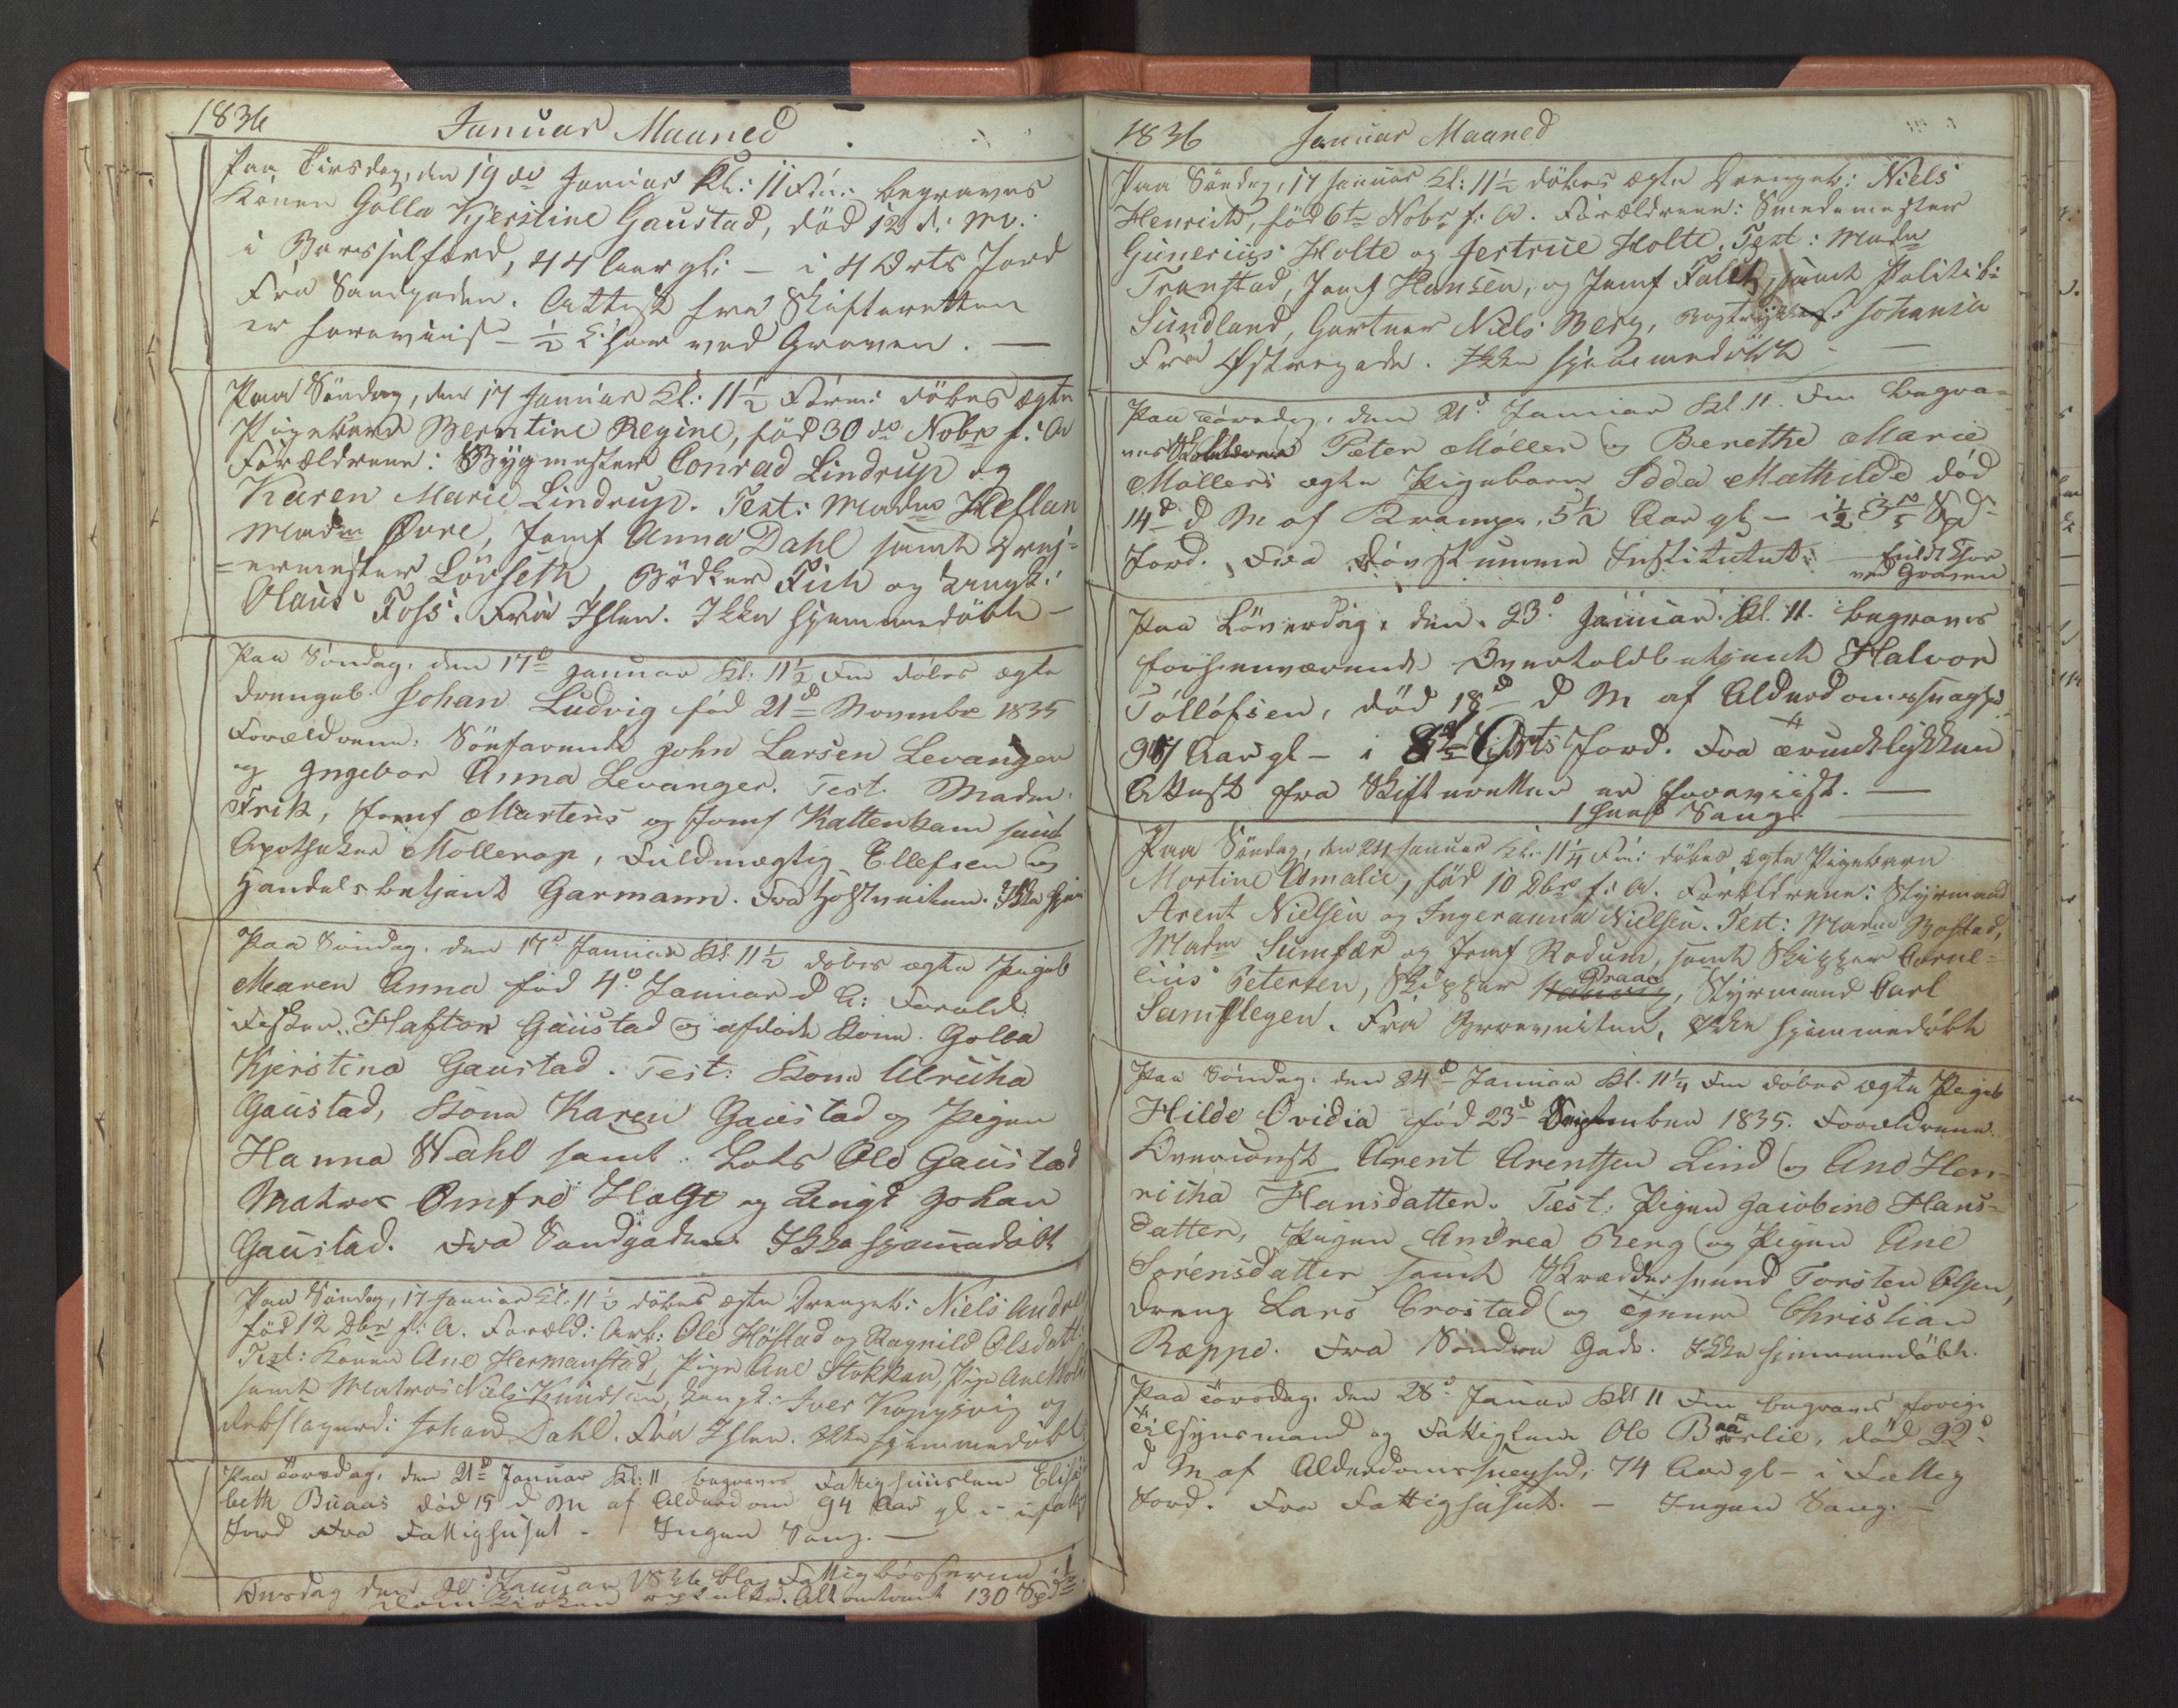 1836 Januar Maaned
Paa Tirsdag, den 19de Januar Kl: 11 Fm: begraves
Konen Golla Kjerstine Gaustad, död 12 d: M:
i Barsselfærd, 44 Aar gl: - i 4 Orts Jord
Fra Sandgaden. Attest fra Skifteretten
er foreviist - 1/2 Chor ved Graven. -
Paa Söndag, den 17 Januar Kl: 11 1/2 Form: döbes ægte
Pigebarn Berntine Regine, föd 30de Nobr f: A
Forældrene: Bygmester Conrad Lindrup og
Karen Marie Lindrup. Test: Madm Hellan
Madm Övre, Jomf Anna Dahl samt Drej-
=ermester Lövseth, Bödker Fich og Ungk:
Olaus Foss. Fra Ihlen. Ikke hjemmedöbt -
Paa Söndag, den 17d Januar Kl: 11 1/2 Fm döbes ægte
Drengeb. Johan Ludvig föd 21d November 1835
Forældrene: Söefarende John Larsen Levanger
og Ingebor Anna Levanger. Test. Madm.
Frik, Jomf Martens og Jomf Kattenkam samt
Apotheker Möllerop, Fuldmægtig Ellefsen og
Handelsbetjent Garmann. Fra Hostveiten. Ikke hjem
Paa Söndag. den 17d Januar Kl 11 1/2 döbes ægte Pigeb
Maren Anna föd 4d Januar d A: Foræld:
Fisker. Haftor Gaustad og afdöde Kone. Golla
Kjerstina Gaustad. Test: Kone Ulricha
Gaustad, Kone Karen Gaustad og Pigen
Hanna Wahl samt. Lods Ole Gaustad
Matros Omfre Hage og Ungk Johan
Gaustad. Fra Sandgaden Ikke hjemmedöbt
Paa Söndag, 17 Januar Kl: 11 1/2 döbes ægte Drengeb: Niels Andreas
föd 12 Dbr f: A. Foræld: Arb: Ole Höstad og Ragnild Olsdatt:
Test: Konen Ane Hermanstad, Pige Ane Stokkan, Pige Ane Wold
samt Matros Niels Knudsen, Ungk: Iver Kopgsvig og
Rebslagersv: Johan Dahl. Fra Ihlen. Ikke hjemmedöbt
Paa Torsdag, den 21d Januar Kl: 11 begraves Fattighuuslem Elisa-
beth Buaas död 15 d M af Alderdom 94 Aar gl - i fattig
Jord Fra Fattighuset - Ingen Sang. -
Onsdag den 20d Januar 1836 blev Fattigbösserne i
Domkirken optalte. Alt omtrent 130 Spd
1836 Januar Maaned
Paa Söndag, 17 Januar Kl: 11 1/2 döbes ægte Drengeb: Niels
Henrich, föd 6te Nobr f: A. Forældrene: Smedemester
Gunerius Holte og Jertrue Holte. Test: Madm
Transtad, Jomf Hansen, og Jomf Falch, samt Politieb:
Sundland, Gartner Niels Berg, Bogtrykkers: Johansen
Fra Østregade. Ikke hjemmedöbt -
Paa Torsdag, den 21d Januar Kl. 11. Fm begra-
ves Peter Møller og Berethe Marie
Møllers ægte Pigebarn Edda Mathilde död
14d d M af Krampe. 5 1/2 Aar gl - i 1/2 Spd
Jord. Fra Døvstumme Institutet: - Fuldt Chor
ved Graven
Paa Löverdag, den. 23d Januar. Kl. 11. begraves
forhenværende Overtoldbetjent Halvor
Tolløfsen, död 18d d M af Alderdomssvaghed
Aar gl - i Orts Jord. Fra Ærundlykken
Attest fra Skifteretten er foreviist. -
1 Sang.
Paa Söndag, den 24 Januar Kl: 11 1/4 Fm: döbes ægte Pigebarn
Mortine Amalie, föd 10 Dbr f: A. Forældrene: Styrmand
Arent Nielsen og Ingeranna Nielsen. Test: Madm Bostad,
Madm Sumfær og Jomf Rodum, samt Skipper Corne-
lius Petersen, Skipper Praae, Styrmand Carl
Samslegen. Fra Brøeveiten, Ikke hjemmedöbt
Paa Söndag. den 24d Januar Kl. 11 1/4 Fm döbes ægte Pigeb
Hilde Ovidia föd 23d September 1835. Forældrene.
Overconst Arent Arentsen Lind og Ane Hen-
richa Hansdatter. Test: Pigen Jacobine Hans-
datter, Pigen Andrea Berg og Pigen Ane
Sørensdatter samt Skræddersvend Torsten Olsen,
Dreng Lars Crostad og Tjener Christian
Ræppe. Fra Söndre Gade. Ikke hjemmedöbt.
Paa Torsdag. den 28d Januar Kl 11 Fm begraves forrige
Tilsynsmand og Fattiglem Ole Baarlie, död 22d
d M af Alderdomssvaghed, 74 Aar gl - i Fattig
Jord. Fra Fattighuset. - Ingen Sang. -